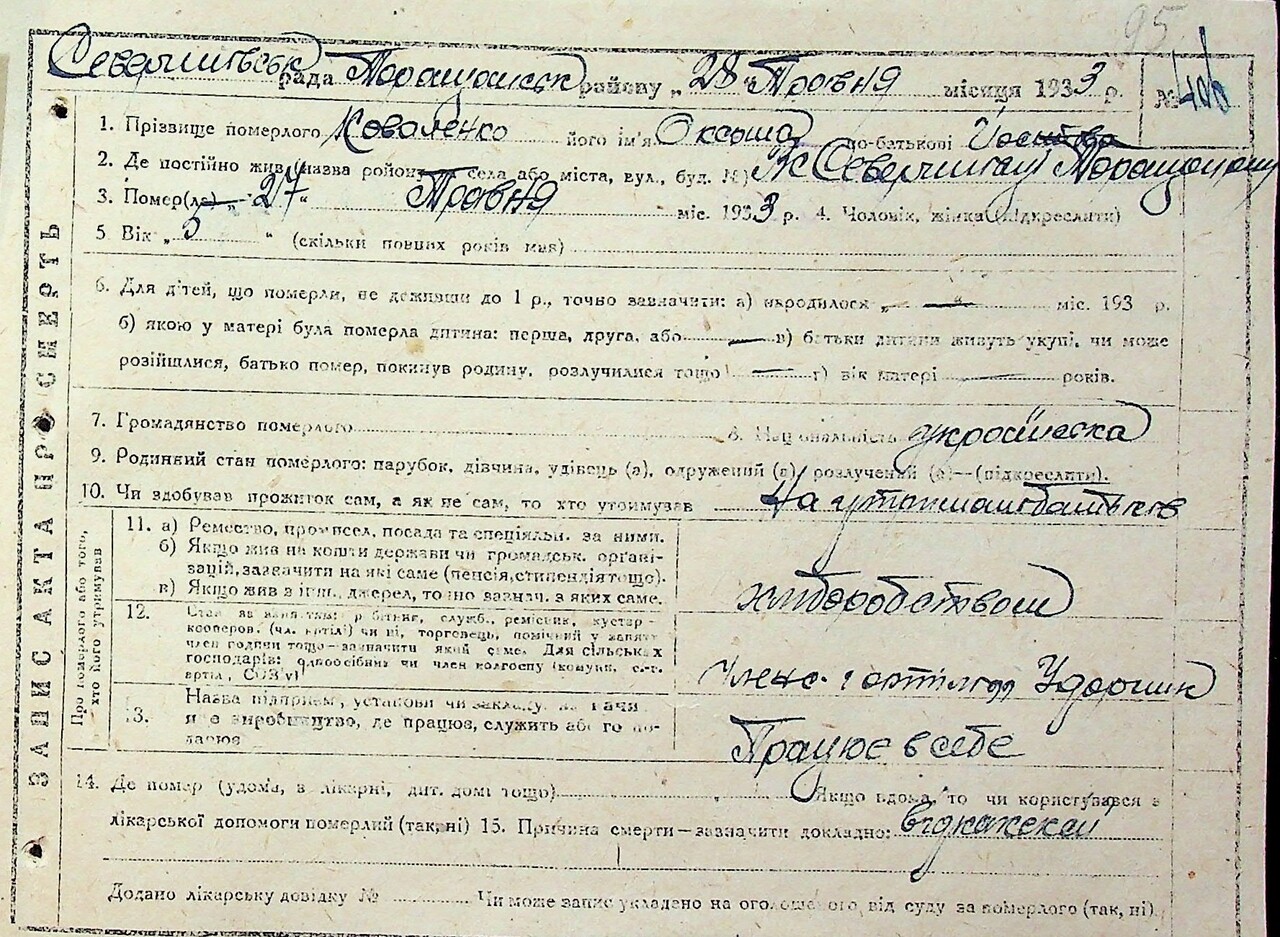 95
рада Таращанськ району „28“ Травня місяця 1933 р. №
1. Прізвище померлого Коваленко його ім'я Оксана по-батькові
2. Де постійно жив (назва району, села або міста, вул., буд. №)
3. Помер(ла) „27“ Травня міс. 1933 р. 4. Чоловік, жінка (підкреслити)
5. Вік „5“ (скільки повних років мав)
6. Для дітей, що померли, не доживши до 1 р., точно зазначити: а) народилося „ — “ міс. 193 р.
б) якою у матері була померла дитина: перша, друга, або — в) батьки дитини живуть укупі, чи може
розійшлися, батько помер, покинув родину, розлучилися тощо — г) вік матері — років.
7. Громадянство померлого 8. Національність українка
9. Родинний стан померлого: парубок, дівчина, удівець (а), одружений (а) розлучений (а)—(підкреслити).
10. Чи здобував прожиток сам, а як не сам, то хто утримував На утриманні батьків
ЗАПИС АКТА ПРО СМЕРТЬ
Про померлого або того,
хто його утримував
11. а) Ремество, промисел, посада та спеціяльн. за ними.
б) Якщо жив на кошти держави чи громадськ. органі-
зацій, зазначити на які саме (пенсія, стипендія тощо).
в) Якщо жив з інш. джерел, точно зазнач. з яких саме.
хліборобством
12. Стан за
кооперов. (чл. артілі) чи ні, торговець, помічний у занятт.
член родини тощо—зазначити який саме. Для сільських
господарів: одноосібник чи член колгоспу (комуни, с.-г.
артіл, СОЗ'у)
Член с г артіли Ударник
13. Назва підприєм, установи чи закладу,
виробництво, де працює, служить або
Працює в себе
14. Де помер (удома, в лікарні, дит. домі тощо) Якщо вдома, то чи користувався з
лікарської допомоги померлий (так, ні) 15. Причина смерти—зазначити докладно:
Додано лікарську довідку № Чи може запис укладено на оголошеного від суду за померлого (так, ні).